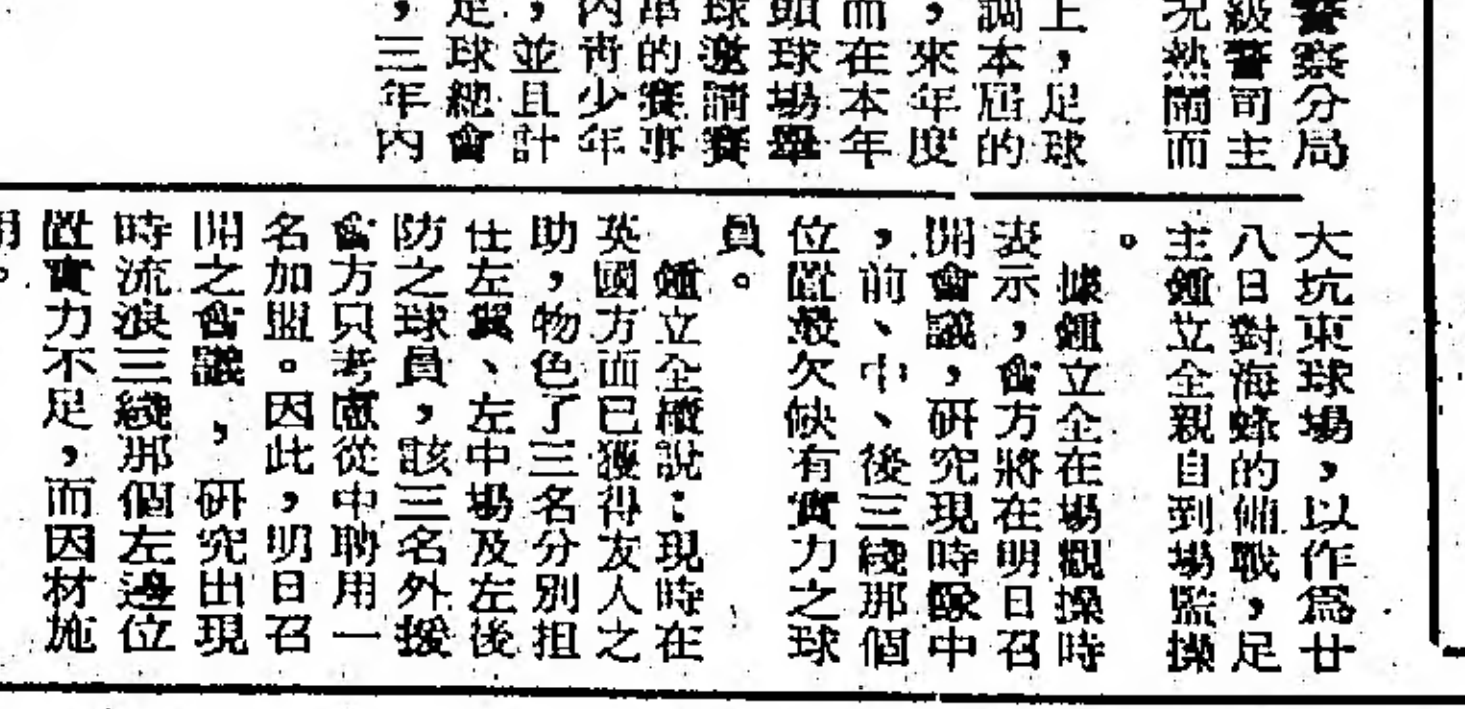 警察分局
級警司主
況熱鬧而
上，足球
調本屆的
，來年度
而在本年
頭球場舉
球邀請賽
串的賽事
內青少年
，並且計
足球總會
，三年內
大坑東球場，以作爲廿
八日對海蜂的備戰，足
主鍾立全親自到場監操
。
據鍾立全在場觀操時
表示，會方將在明日召
開會議，研究現時隊中
，前、中、後三綫那個
位置最欠缺有實力之球
員。
鍾立全續說：現時在
英國方面已獲得友人之
助，物色了三名分別担
仕左翼、左中場及左後
防之球員，該三名外援
會方只考慮從中聘用一
名加盟。因此，明日召
開之會議，研究出現
時流浪三綫那個左邊位
置實力不足，而因材施
用。